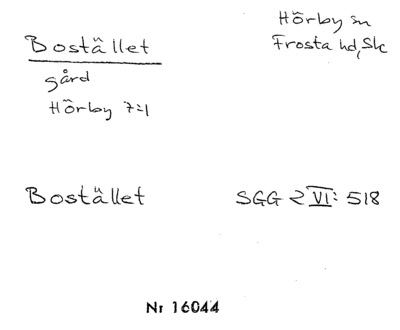 Bostället
Hörby sn
Frosta hd, Sk
gård
Hörby 7:1
Bostället
SGG 2 VI: 518
Nr 16044